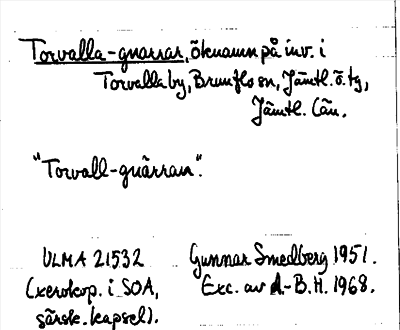 Torvalla-gnarrar, öknamn på inv. i
Torvalla by, Brunflo sn, Jämtl. ö. tg,
Jämtl. län.
"Torvall-gnärran".
ULMA 21532
(xerokop. i SOA,
särsk. kapsel).
Gunnar Smedberg 1951.
Exc. av -B.H. 1968.